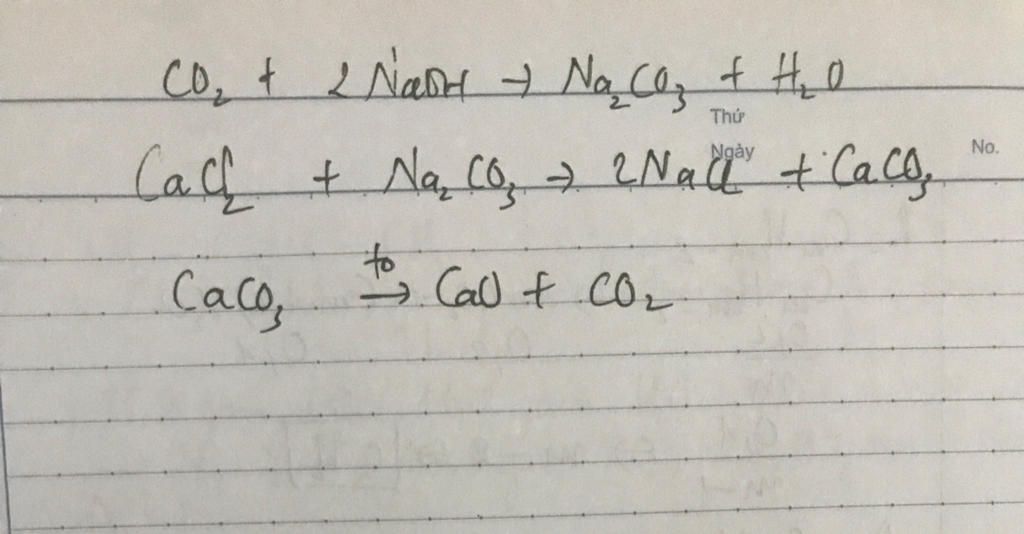 CO₂ + 2NaOH → Na₂CO₃ + H₂O
Thứ
Ngày
No.
CaCl₂ + Na₂CO₃ → 2NaCl + CaCO₃
CaCO₃ →^{to} CaO + CO₂